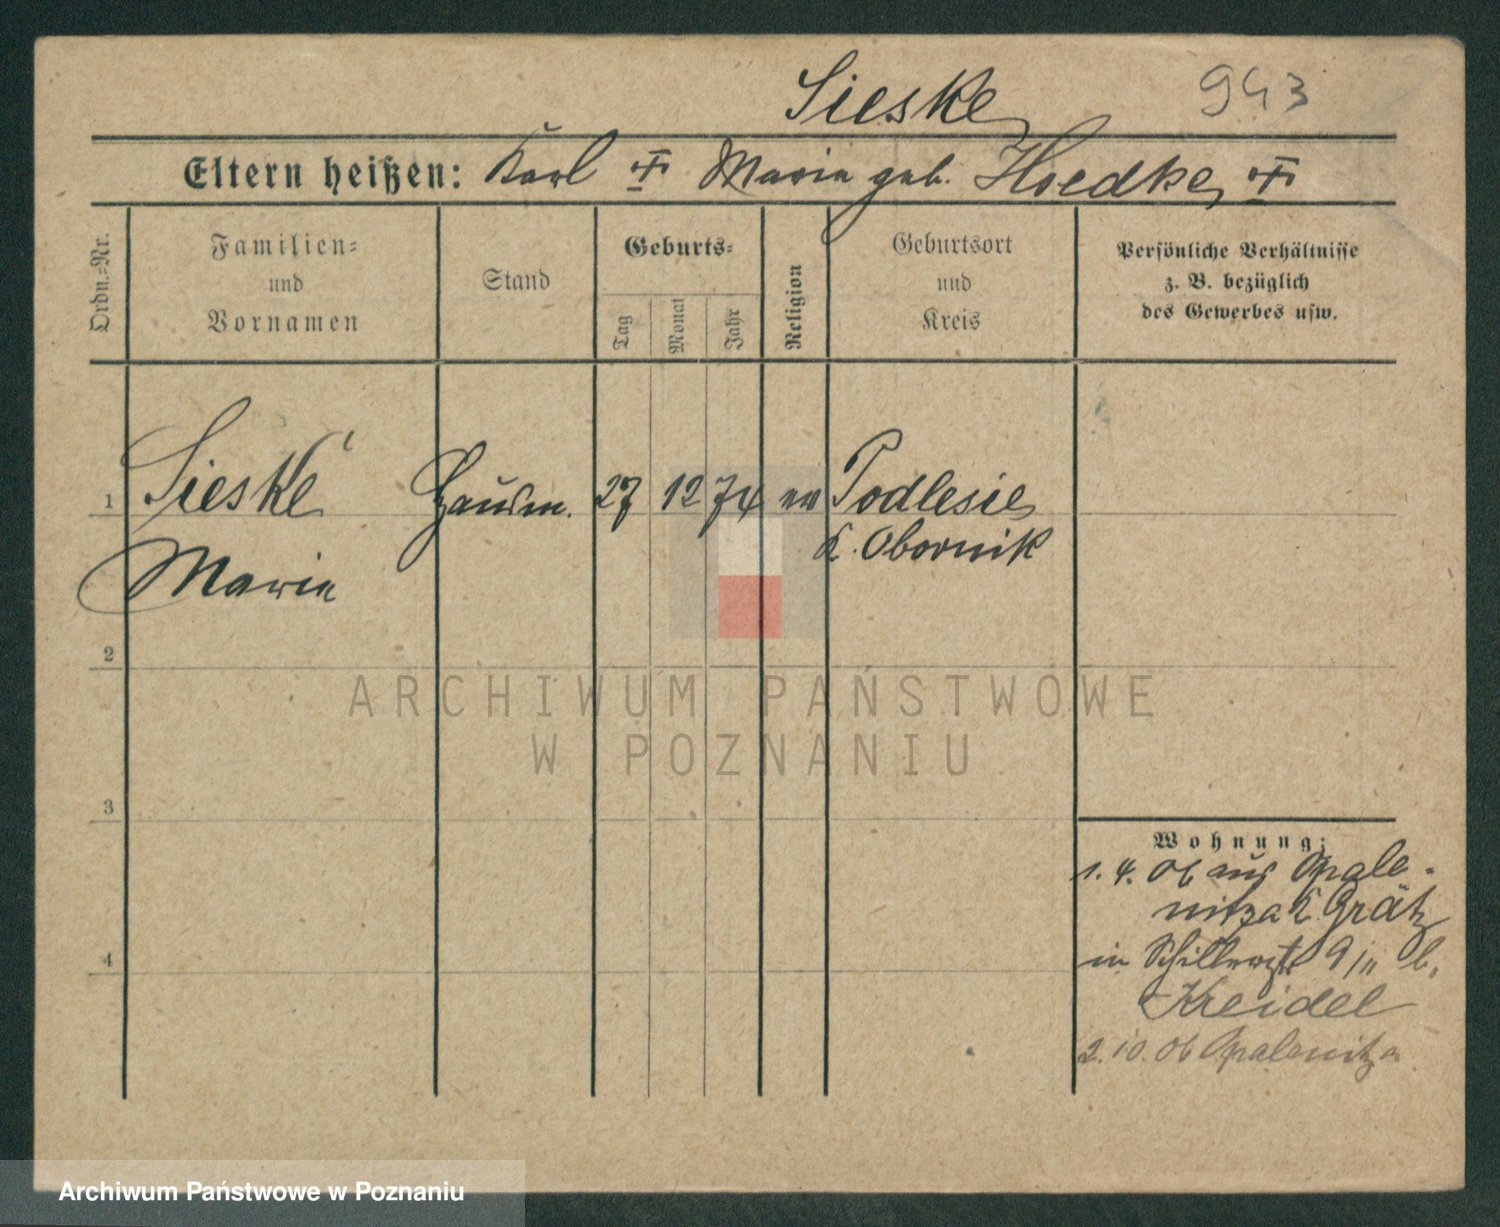 Sieske 943
Eltern heißen: Karl Maria geb. Hoedke
Ordn.-Nr.
Familien-
und
Vornamen
Stand
Geburts-
Tag
Monat
Jahr
Religion
Geburtsort
und
Kreis
Persönliche Verhältnisse
z. B. bezüglich
des Gewerbes usw.
1 Sieske 27 12 74 ev Podlesie
K. Obornik
Maria
2
3
Wohnung:
1. 4. 06 aus Opale-
nitza K. Grätz
4
in Schillerstr 9/II b.
Kreidel
2. 10. 06 Opalenitza
ARCHIWUM PAŃSTWOWE
W POZNANIU
Archiwum Państwowe w Poznaniu